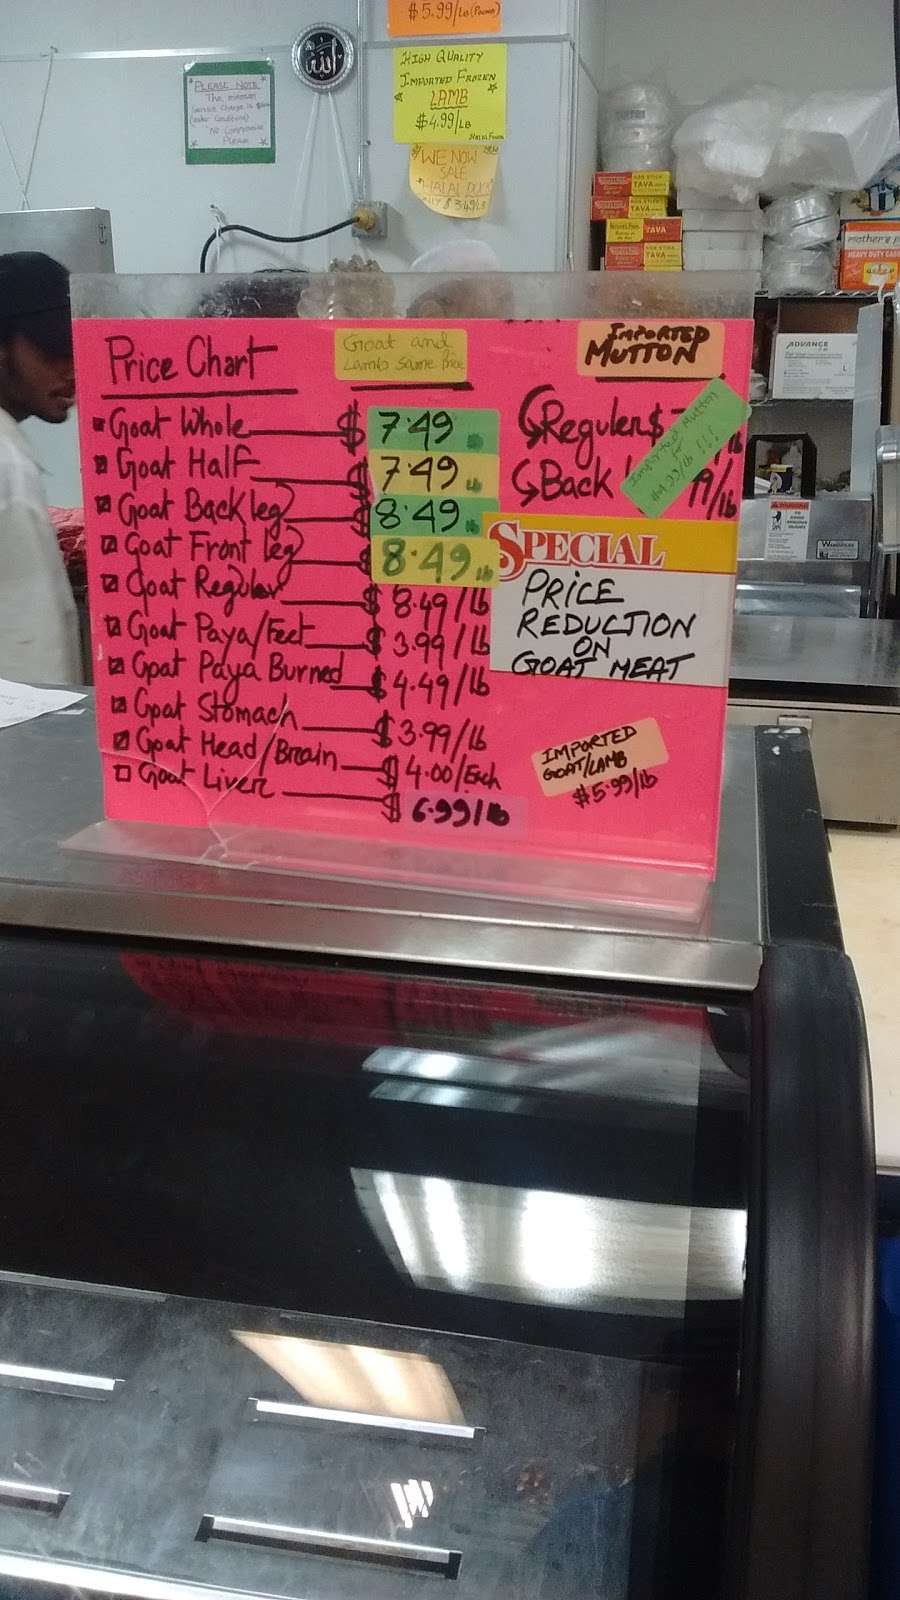 $5.99/Lb (Pound)
HIGH QUALITY
IMPORTED FROZEN
LAMB
$4.99/LB
PLEASE NOTE
The minimum
NO COMPROMISE
PLEASE
الله
WE NOW
SALE
HALAL
NON STICK
TAVA
TAVA
TAVA
mother's
HEAVY DUTY
ADVANCE
L
Price Chart
Goat and
Lamb same price
Goat Whole $ 7.49
Goat Half $ 7.49 lb
Goat Back leg $ 8.49 lb
Goat Front leg $ 8.49 lb
Goat Regular $ 8.49/lb
Goat Paya/Feet $ 3.99/lb
Goat Paya Burned $ 4.49/lb
Goat Stomach $ 3.99/lb
Goat Head/Brain $ 4.00/Each
Goat Liver $ 6.99/lb
IMPORTED
MUTTON
Reguler $
Back
9/lb
Imported Mutton
for
$4.99/lb !!!
SPECIAL
PRICE
REDUCTION
ON
GOAT MEAT
IMPORTED
GOAT/LAMB
$5.99/lb